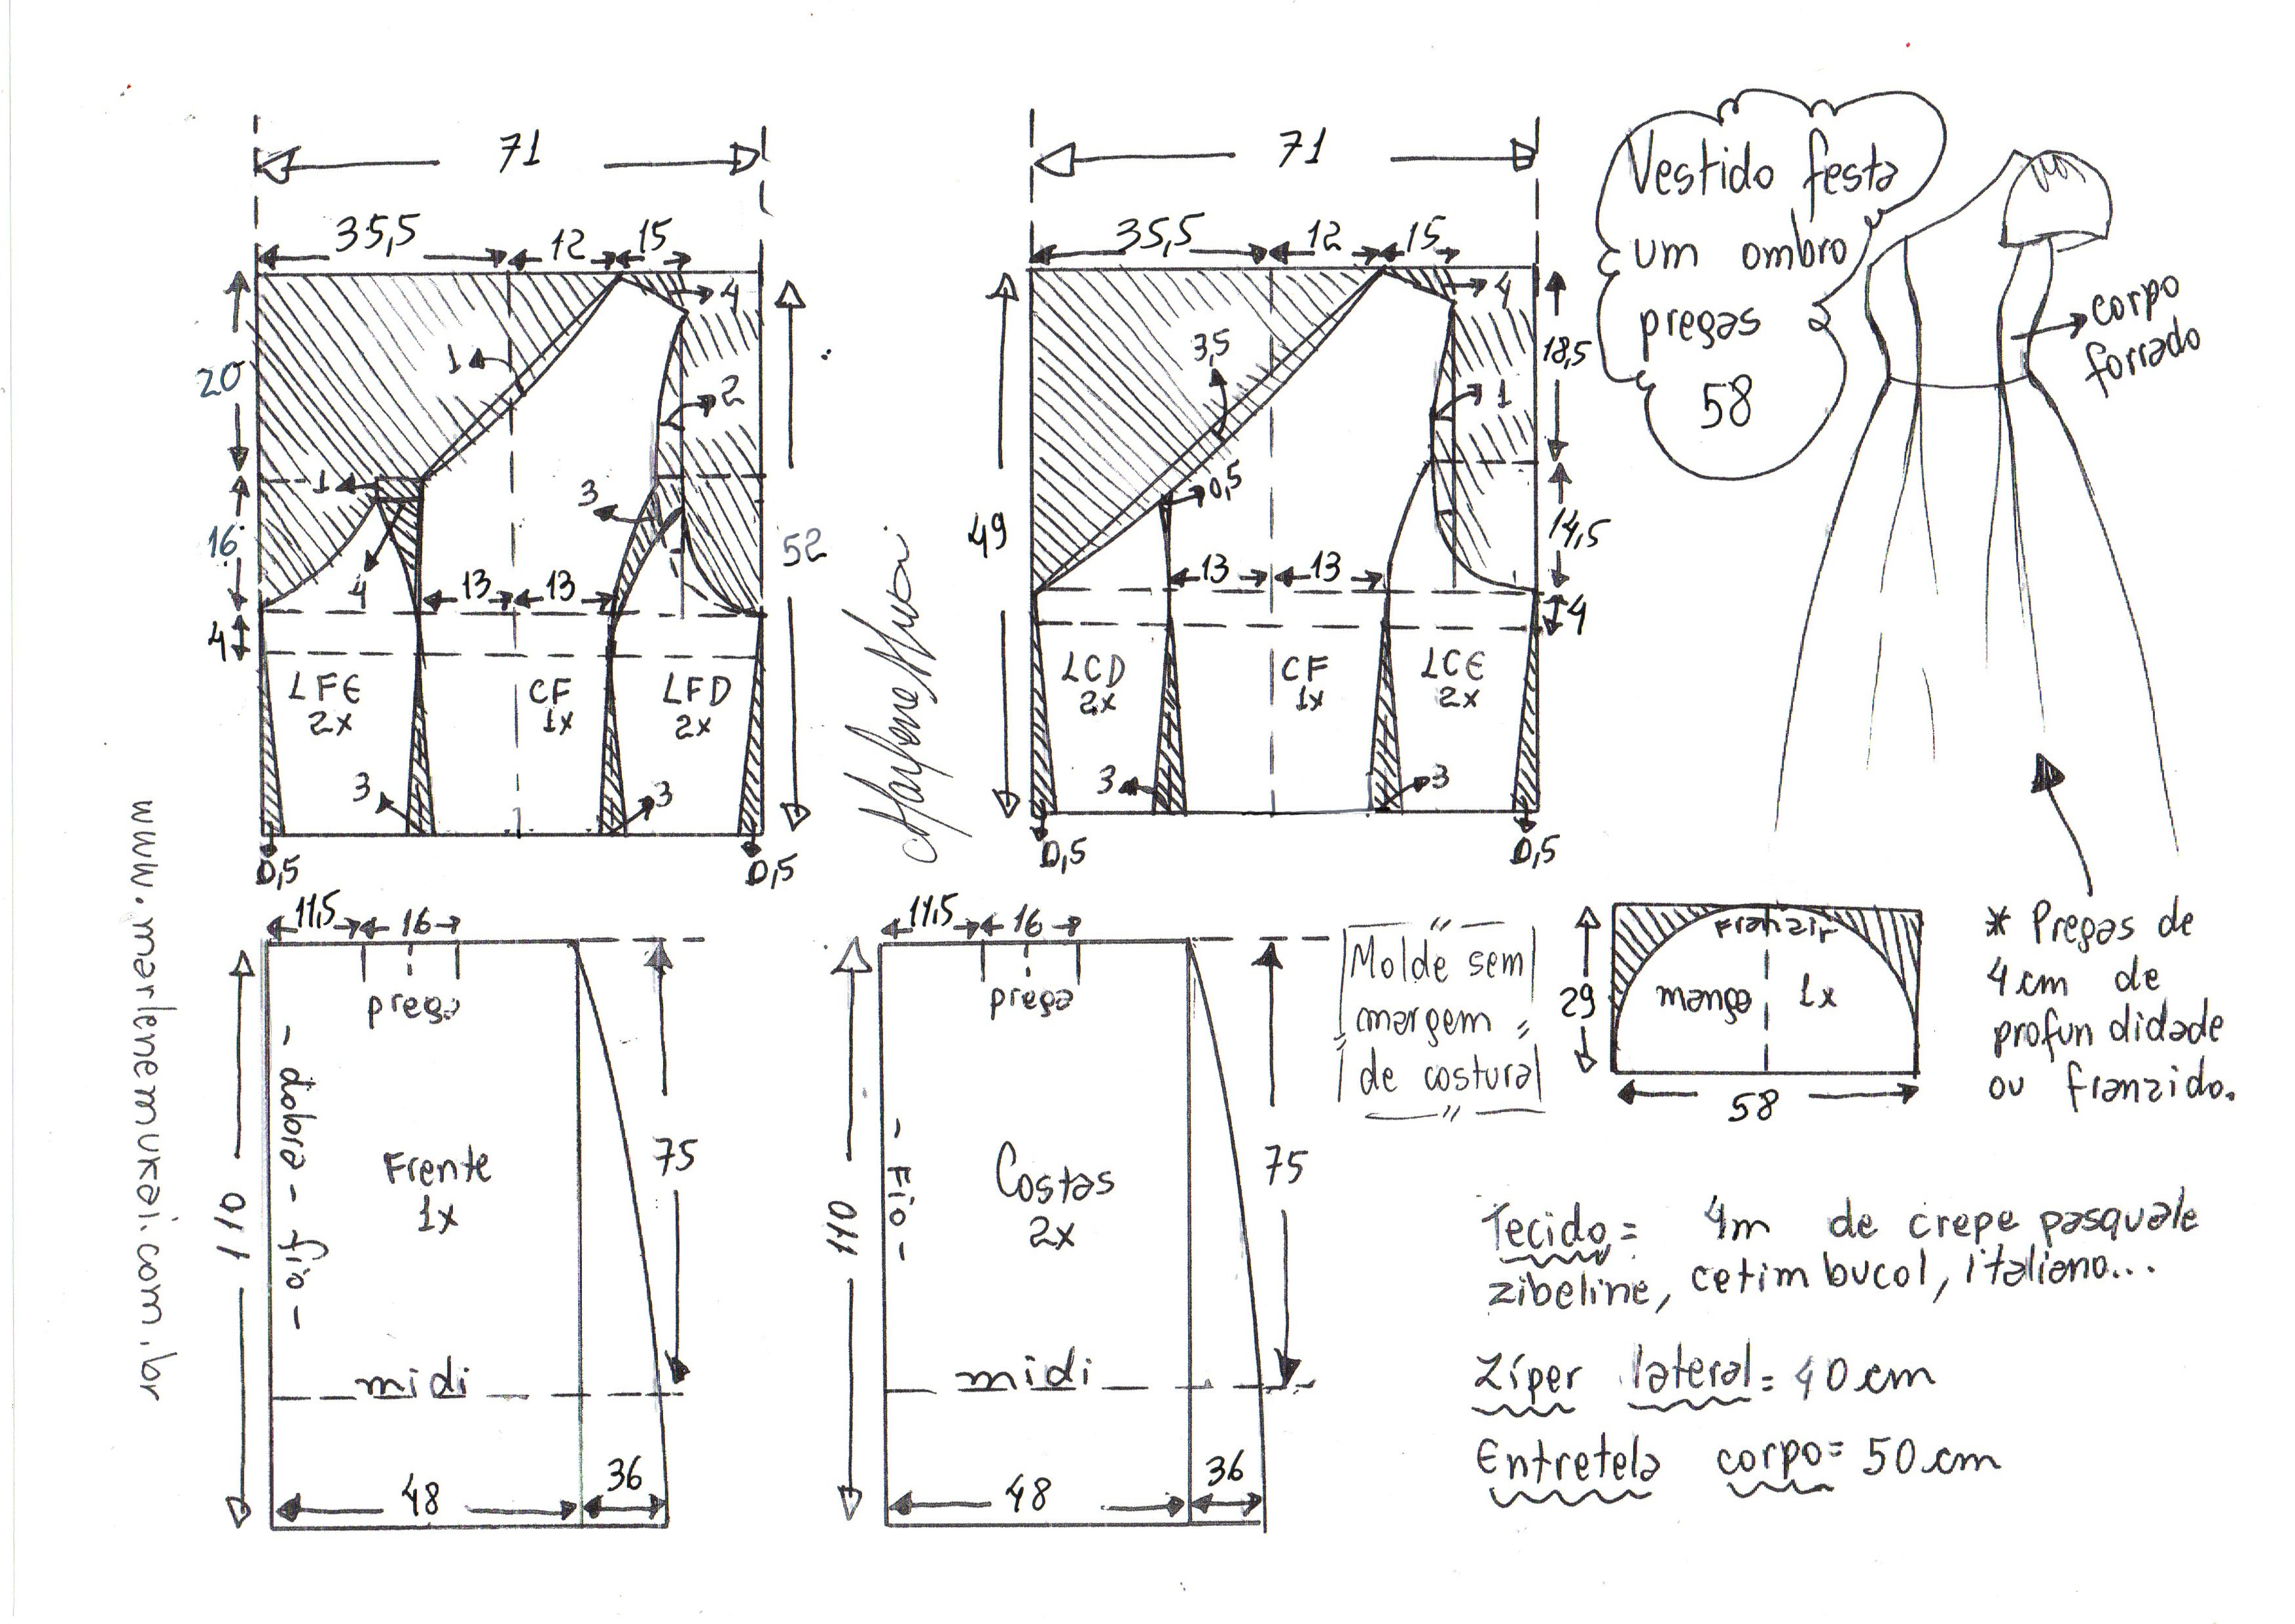 71
35,5 12 15
4
1
2
20
1
3
16
4
13 13
52
4
LFE
2x
CF
1x
LFD
2x
3
3
0,5
0,5
Marlene Mukai
www.marlenemukai.com.br
71
35,5 12 15
4
3,5
1
18,5
0,5
49
14,5
13 13
4
LCD
2x
CF
1x
LCE
2x
3
3
0,5
0,5
Vestido festa
um ombro
pregas
58
corpo
forrado
11,5 16
prega
110
- dobra - fio -
Frente
1x
75
midi
48
36
11,5 16
prega
110
- Fio -
Costas
2x
75
midi
48
36
Molde sem
margem
de costura
Franzir
manga 1x
29
58
* Pregas de
4cm de
profundidade
ou franzido.
Tecido = 4m de crepe pasquale
zibeline, cetim bucol, italiano...
Zíper lateral = 40 cm
Entretela corpo = 50 cm